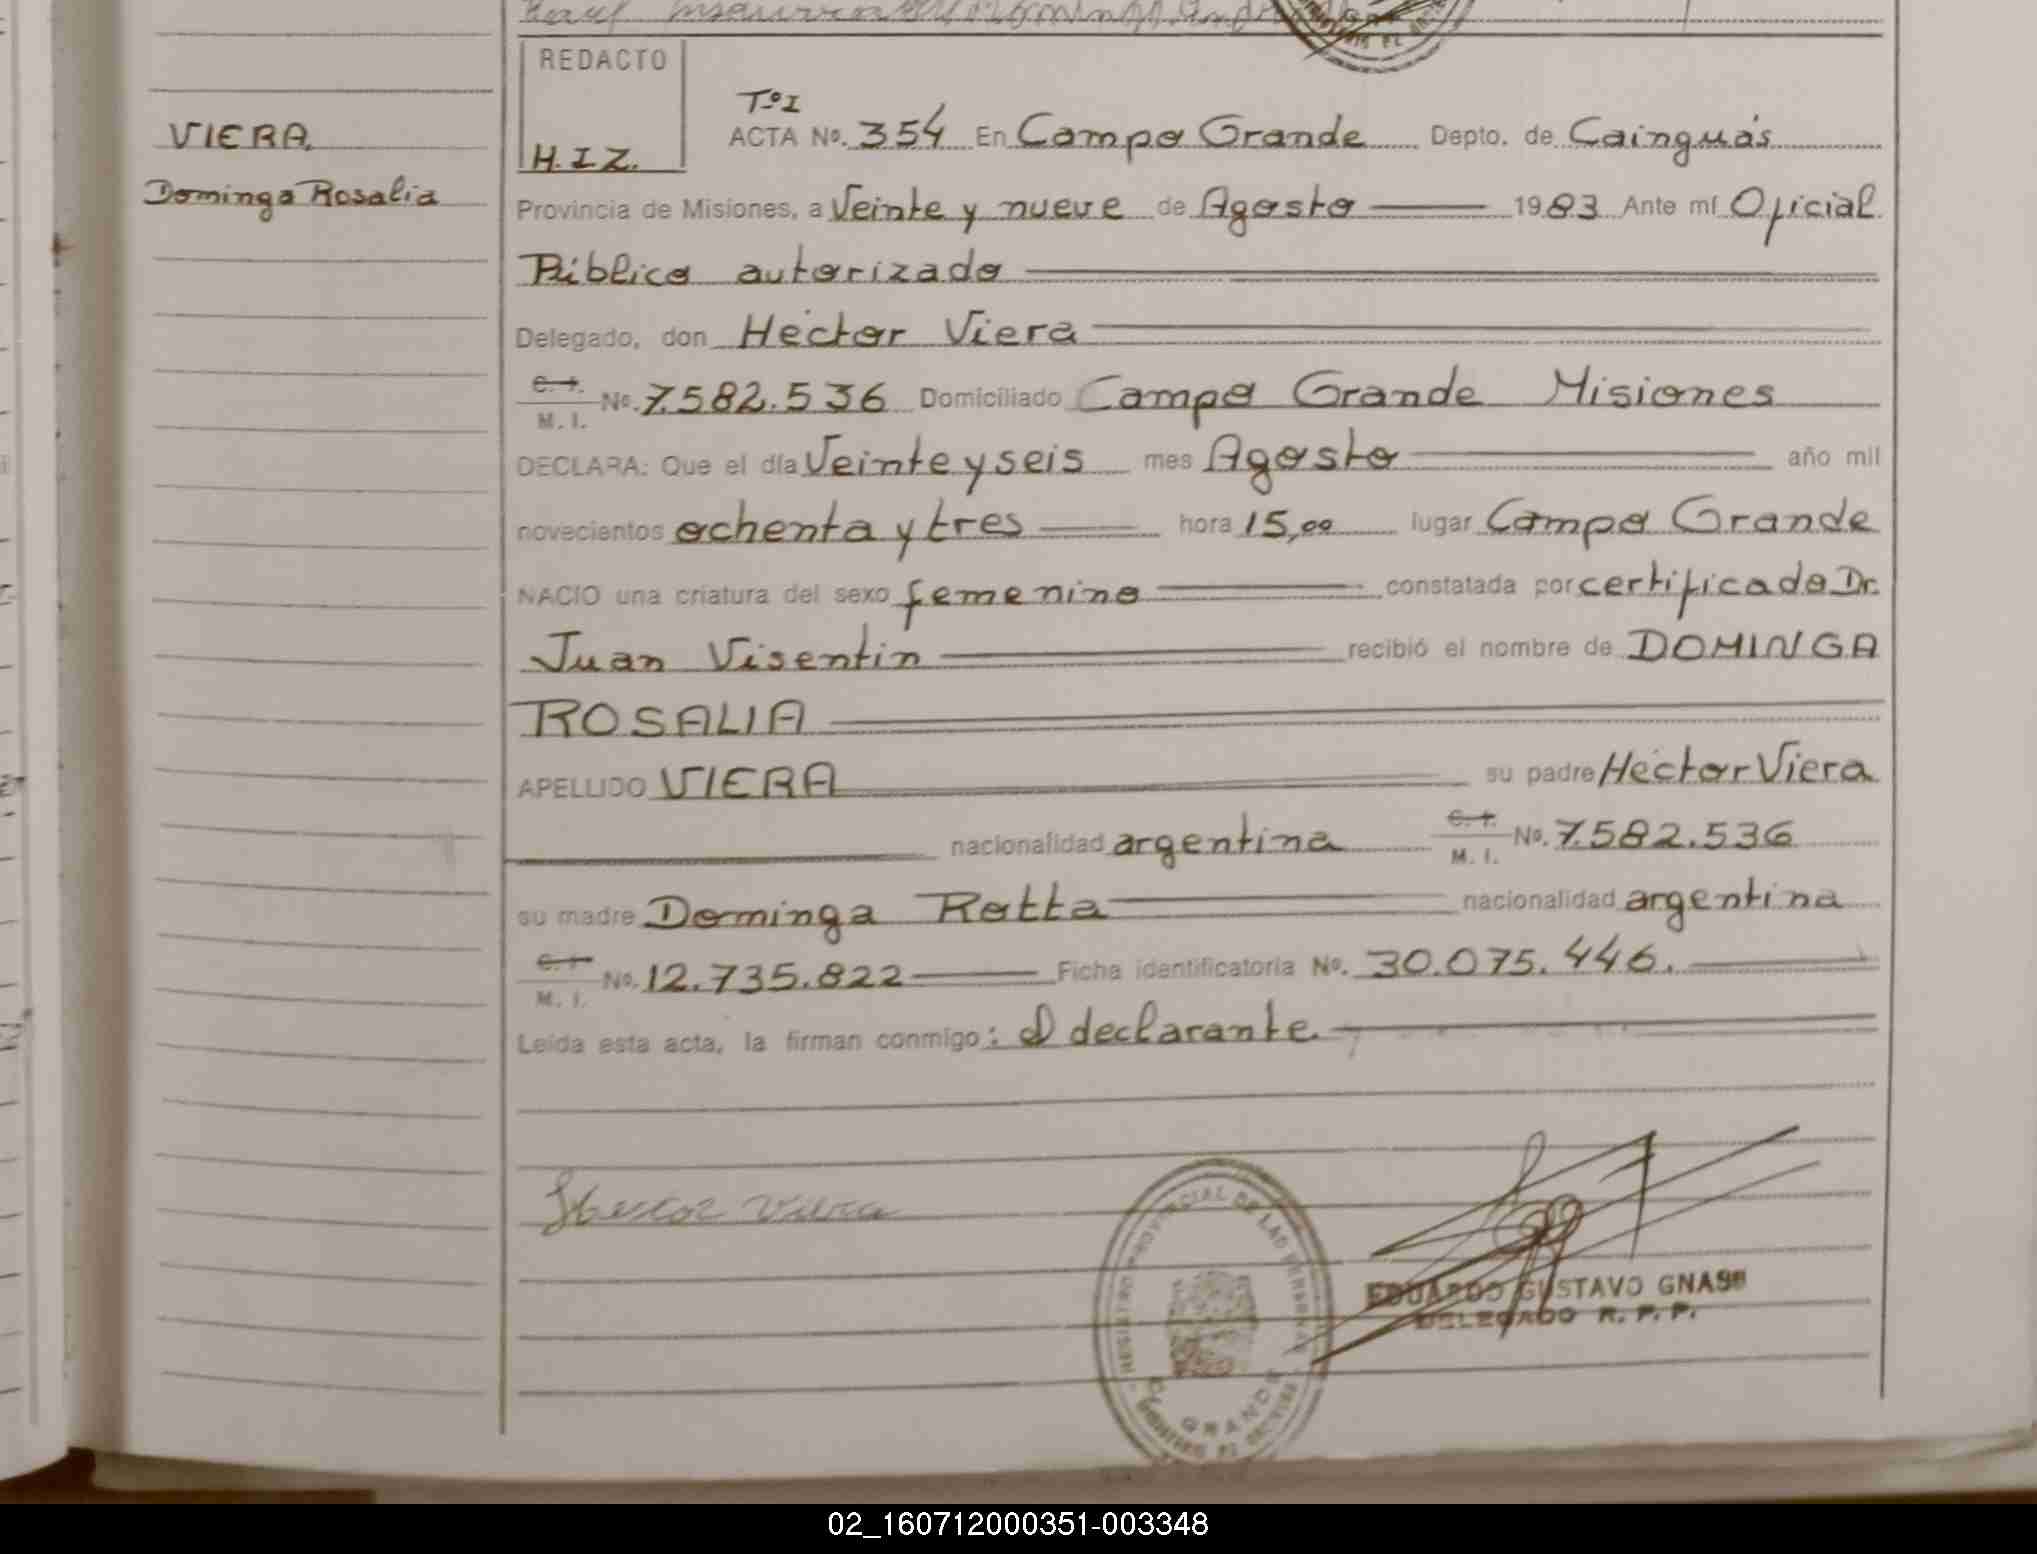 REDACTO
H.I.Z.
VIERA
Dominga Rosalia
Tº I
ACTA Nº. 354 En Campo Grande Depto. de Cainguás
Provincia de Misiones, a Veinte y nueve de Agosto 1983 Ante mí Oficial
Público autorizado
Delegado, don Hector Viera
C. I.
M. I. Nº. 7.582.536 Domiciliado Campo Grande Misiones
DECLARA: Que el día Veinte y seis mes Agosto año mil
novecientos ochenta y tres hora 15,00 lugar Campo Grande
NACIO una criatura del sexo femenino constatada por certificado Dr.
Juan Visentin recibió el nombre de DOMINGA
ROSALIA
APELLIDO VIERA su padre Hector Viera
nacionalidad argentina C. I. M. I. Nº. 7.582.536
su madre Dominga Rotta nacionalidad argentina
C. I.
M. I. Nº. 12.735.822 Ficha identificatoria Nº. 30.075.446.
Leída esta acta, la firman conmigo: el declarante.
Hector Viera
REGISTRO PROVINCIAL DE LAS PERSONAS
GRANDE
EDUARDO GUSTAVO
DELEGADO R. P. P.
02_160712000351-003348